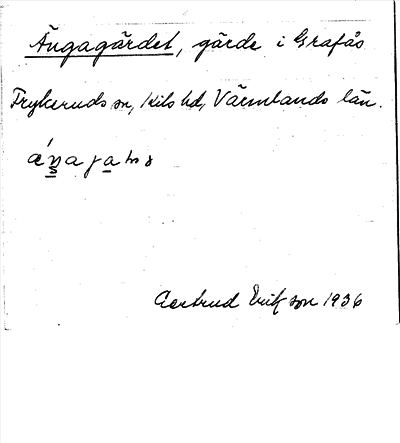 Ängagärdet, gärde i Grafås
Frykeruds sn, Kils hd, Värmlands län.
Gertrud Erikson 1936